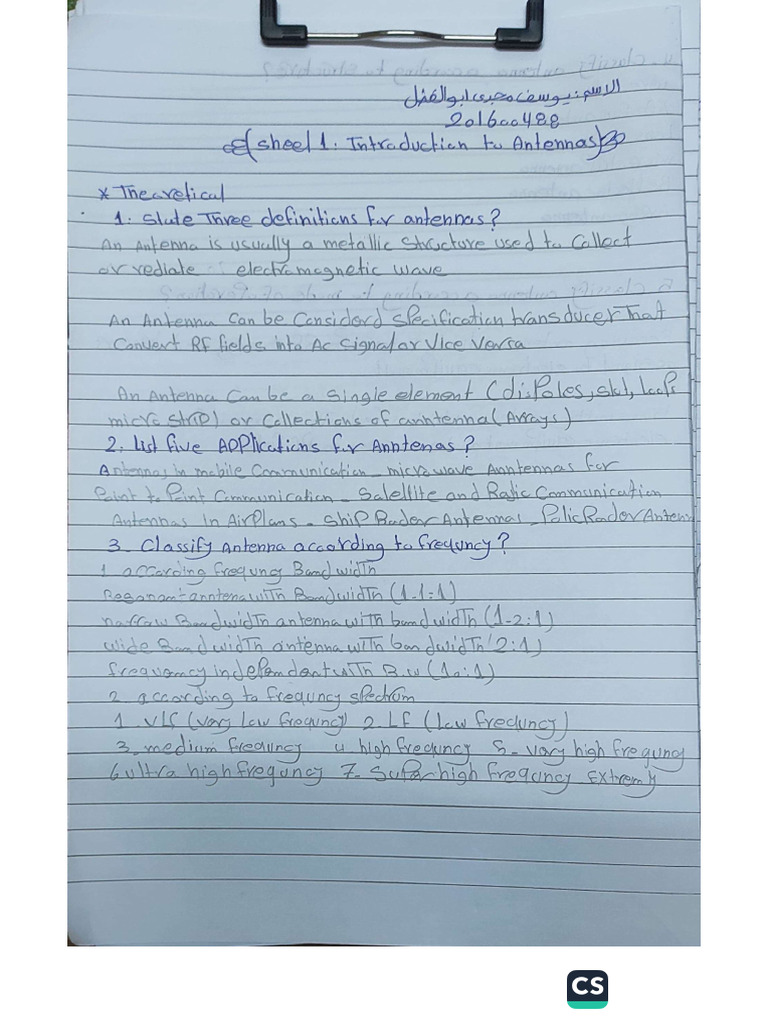 الاسم: يوسف مجدى ابوالفضل
201600488
(sheet 1: Introduction to Antennas)
* Theoretical
1. State Three definitions for antennas?
An Antenna is usually a metallic structure used to Collect
or rediate electromagnetic wave
An Antenna Can be Considerd specification transducer That
Convert RF fields into Ac Signal or Vice Versa
An Antenna Can be a single element (di:Poles, slot, loops
micro strip) or Collections of anntenna (Arrays)
2. List five Applications for Anntenas?
Antennas in mobile Communication - microwave Anntennas for
Point to Point Communication - Satellite and Radio Communication
Antennas in AirPlans - Ship Rader Antennas - Polic Rader Antenn
3. Classify Antenna according to frequncy?
1 according frequncy Bandwidth
Resonant anntena with Bandwidth (1-1:1)
narrow Bandwidth antenna with bandwidth (1-2:1)
wide Bandwidth antenna with bandwidth (2:1)
frequancy independant with B.w (10:1)
2 according to frequncy spectrom
1. VLf (very Low frequncy) 2. LF (low frequncy)
3- medium frequncy 4. high frequncy 5- very high frequncy
6 ultra high frequncy 7- Super high frequncy Extremly
CS